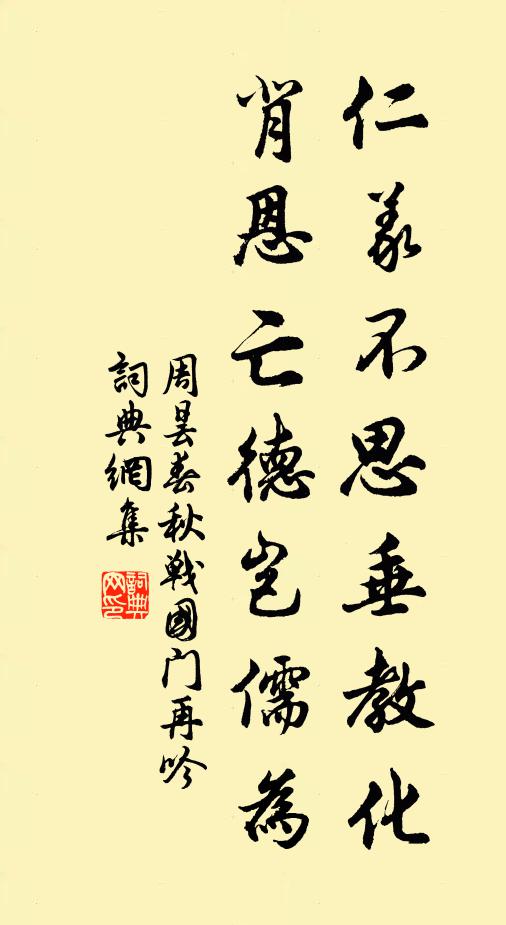 仁義不思垂教化
背恩亡德豈儒為
周曇春秋戰國門再吟
詞典網集
詞典网印